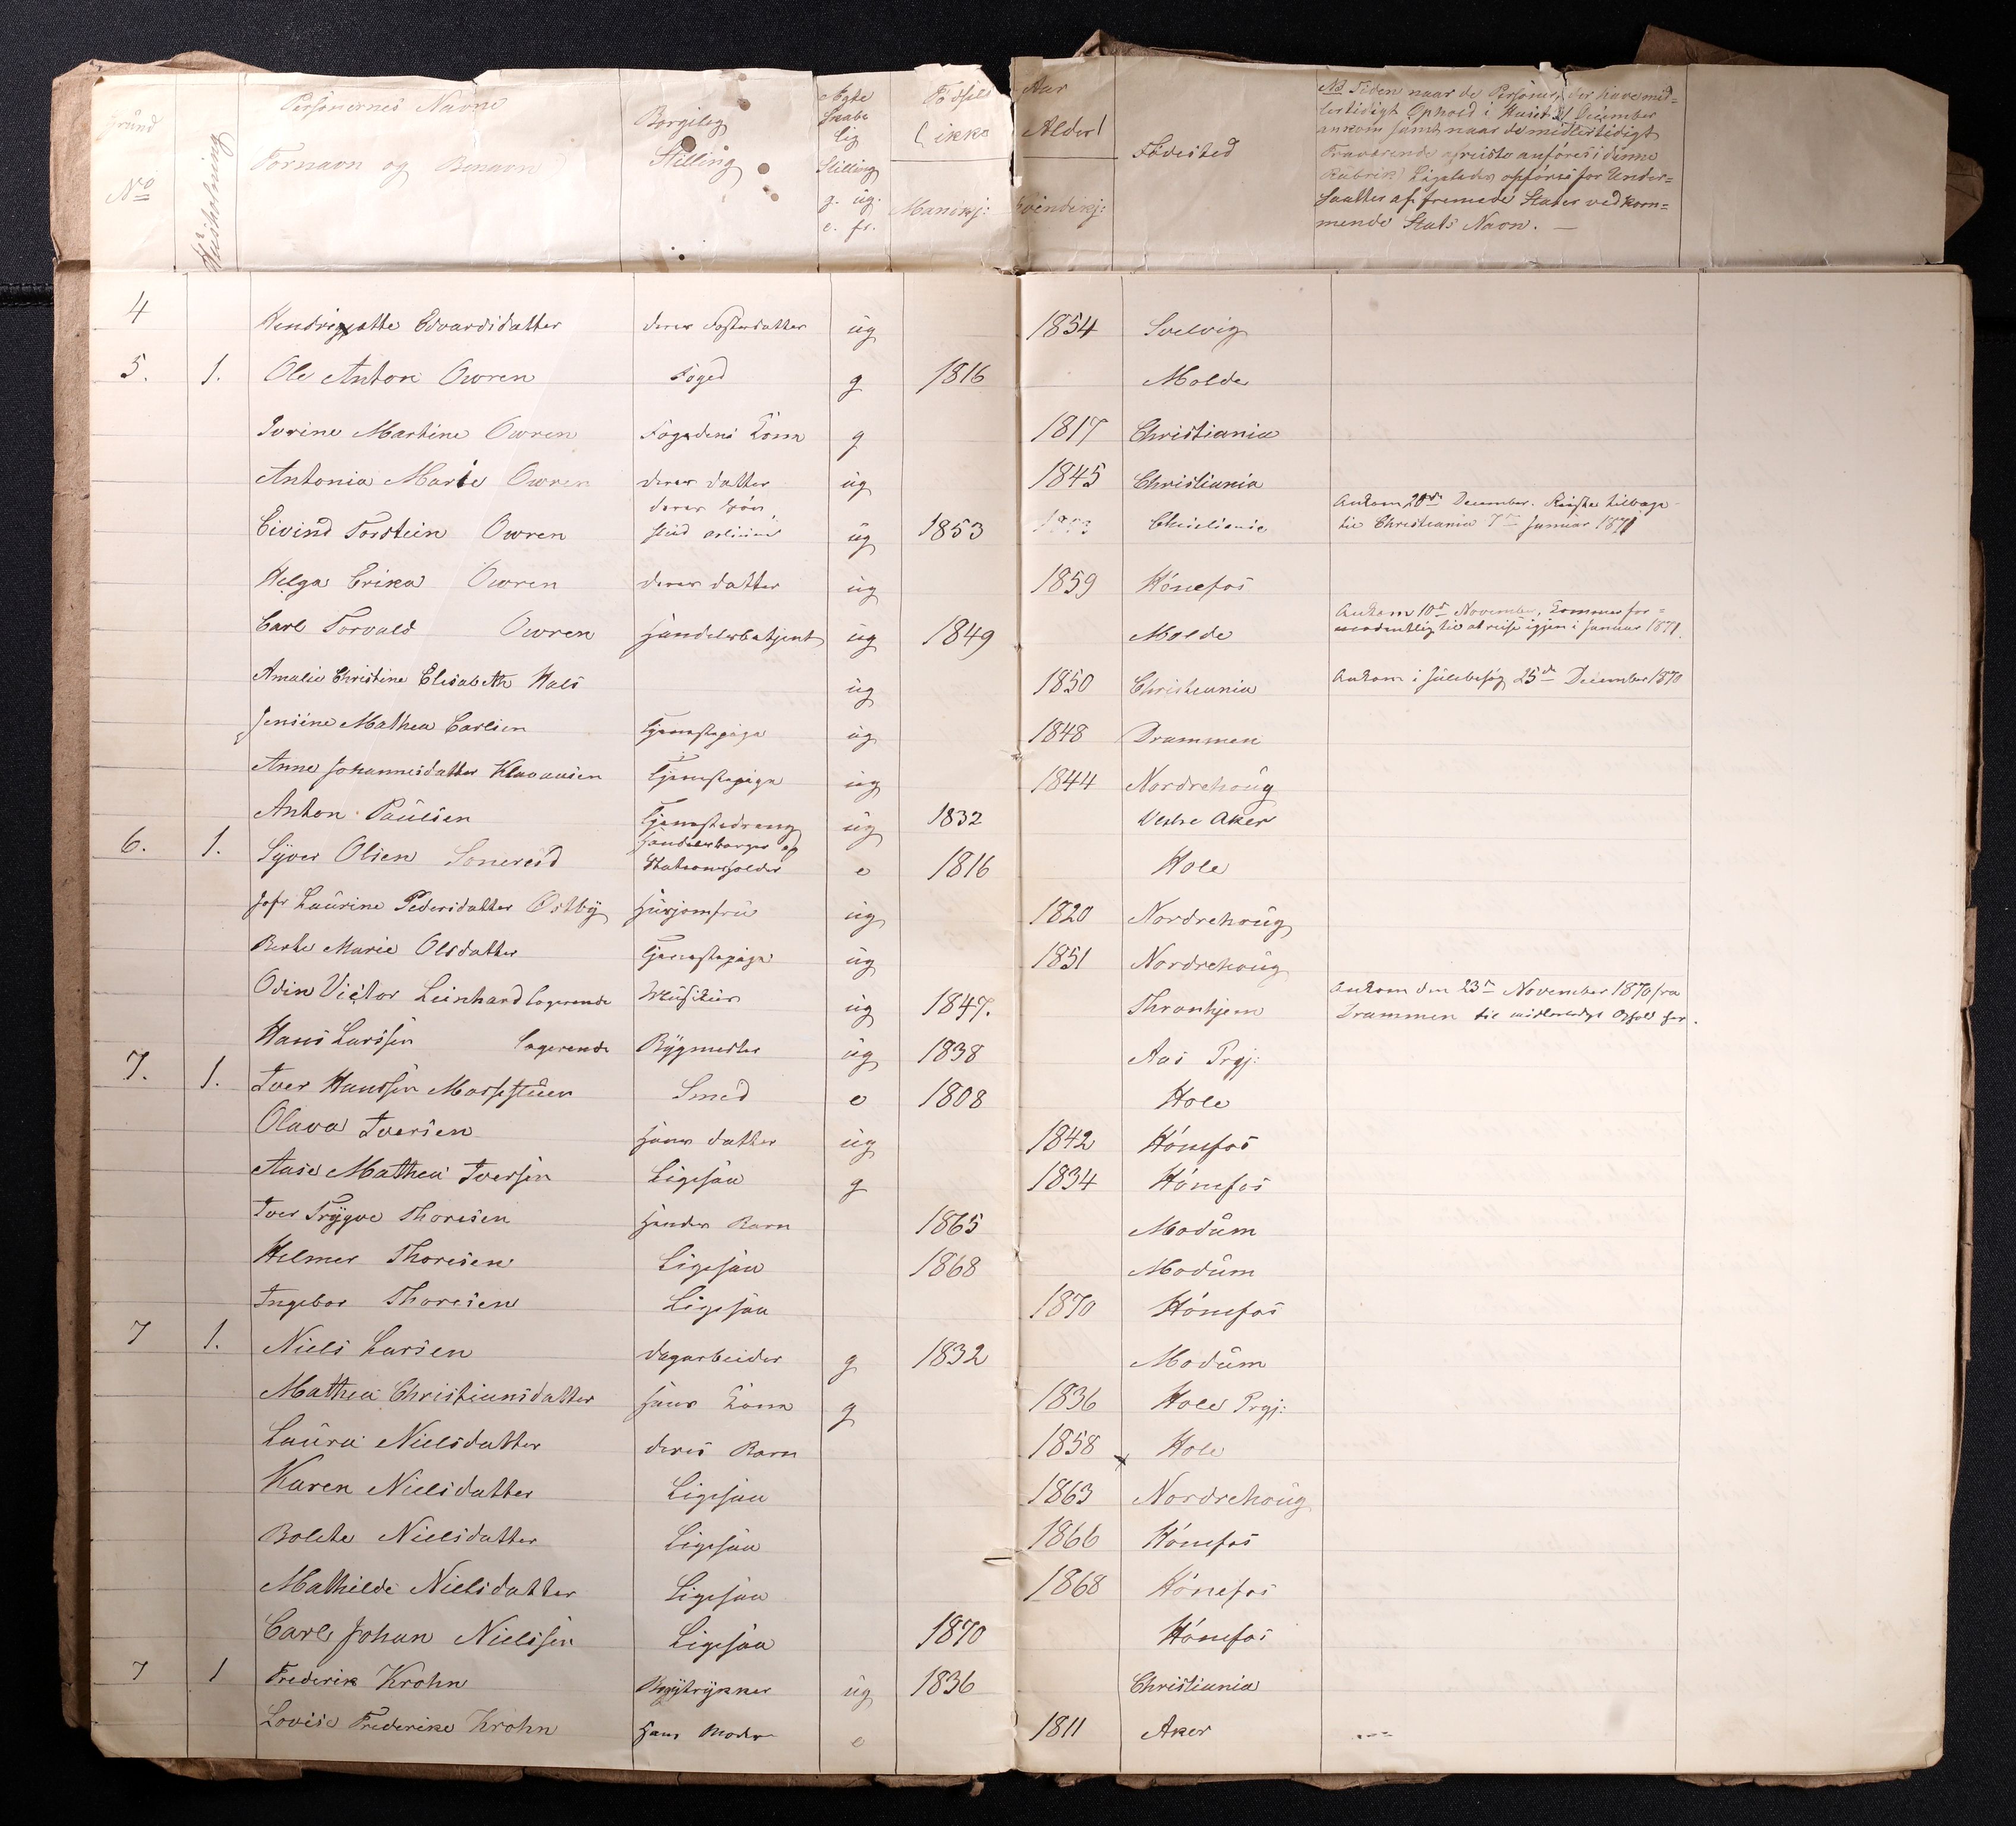 Grund
No
Huusholdning
Personernes Navne
Fornavn og Benavn
Borgilig
Stilling
Ægte
Skabe
lig
Stilling
g. ug.
e. fr.
Fødsels Aar
(ikke Alder)
Mandkj: Qvindekj:
Fødested
NB Tiden naar de Personer, der have mid=
lertidigt Ophold i Huset 31 December
ankom samt naar de midlertidigt
Fraværende afreiste anføres i denne
Rubrik Ligeledes opføres for Under=
saatter af fremede Stater vedkom=
mende Stats Navn. —
4 Hendrigette Edvardsdatter deres Fosterdatter ug 1854 Svelvig
5. 1. Ole Anton Owren Foged g 1816 Molde
Jorine Martine Owren Fogdens Kone g 1817 Christiania
Antonia Marie Owren deres datter ug 1845 Christiania
Eivind Torstein Owren deres søn, ug 1853 Christiania Ankom 20de December. Reiste tilbage
til Christiania 7de Januar 1871
Helga Erika Owren deres datter ug 1859 Hönefos
Carl Torvald Owren Handelsbetjent ug 1849 Molde Ankom 10de November, kommer for=
modentlig til at reise igjen i Januar 1871.
Amalie Christine Elisabeth Hals ug 1850 Christiania Ankom i Julebesøg 25de December 1870
Jensine Mathea Carlsen Tjenestepige ug 1848 Drammen
Anne Johannesdatter Klavausen Tjenestepige ug 1844 Nordrehoug
Anton Paulsen Tjenestedreng ug 1832 Vestre Aker
6. 1. Syver Olsen Sonerud Handelsborger og
Stationsholder e 1816 Hole
Jofr Laurine Pedersdatter Østby Husjomfru ug 1820 Nordrehoug
Berte Marie Olsdatter Tjenestepige ug 1851 Nordrehoug
Odin Victor Leinhard logerende Musikus ug 1847. Thronhjem Ankom den 23de November 1870 fra
Drammen til midlertidigt Ophold her.
Hans Larssen logerende Bygmester ug 1838 Aas Prgj:
7. 1. Iver Hanssen Mosestuen Smed e 1808 Hole
Olava Iversen Hans datter ug 1842 Hönefos
Aase Mathea Iversen Ligesaa g 1834 Hönefos
Iver Trygve Thoresen Hendes Barn 1865 Modum
Helmer Thoresen Ligesaa 1868 Modum
Ingebor Thoresen Ligesaa 1870 Hönefos
7 1. Niels Larsen dagarbeider g 1832 Modum
Mathea Christiansdatter Hans Kone g 1836 Hole Prgj:
Laura Nielsdatter deres Barn 1858 x Hole
Karen Nielsdatter Ligesaa 1863 Nordrehoug
Bolette Nielsdatter Ligesaa 1866 Hönefos
Mathilde Nielsdatter Ligesaa 1868 Hönefos
Carl Johan Nielsen Ligesaa 1870 Hönefos
7 1 Frederik Krohn Bogtrykker ug 1836 Christiania
Lovise Frederike Krohn Hans Moder e 1811 Aker